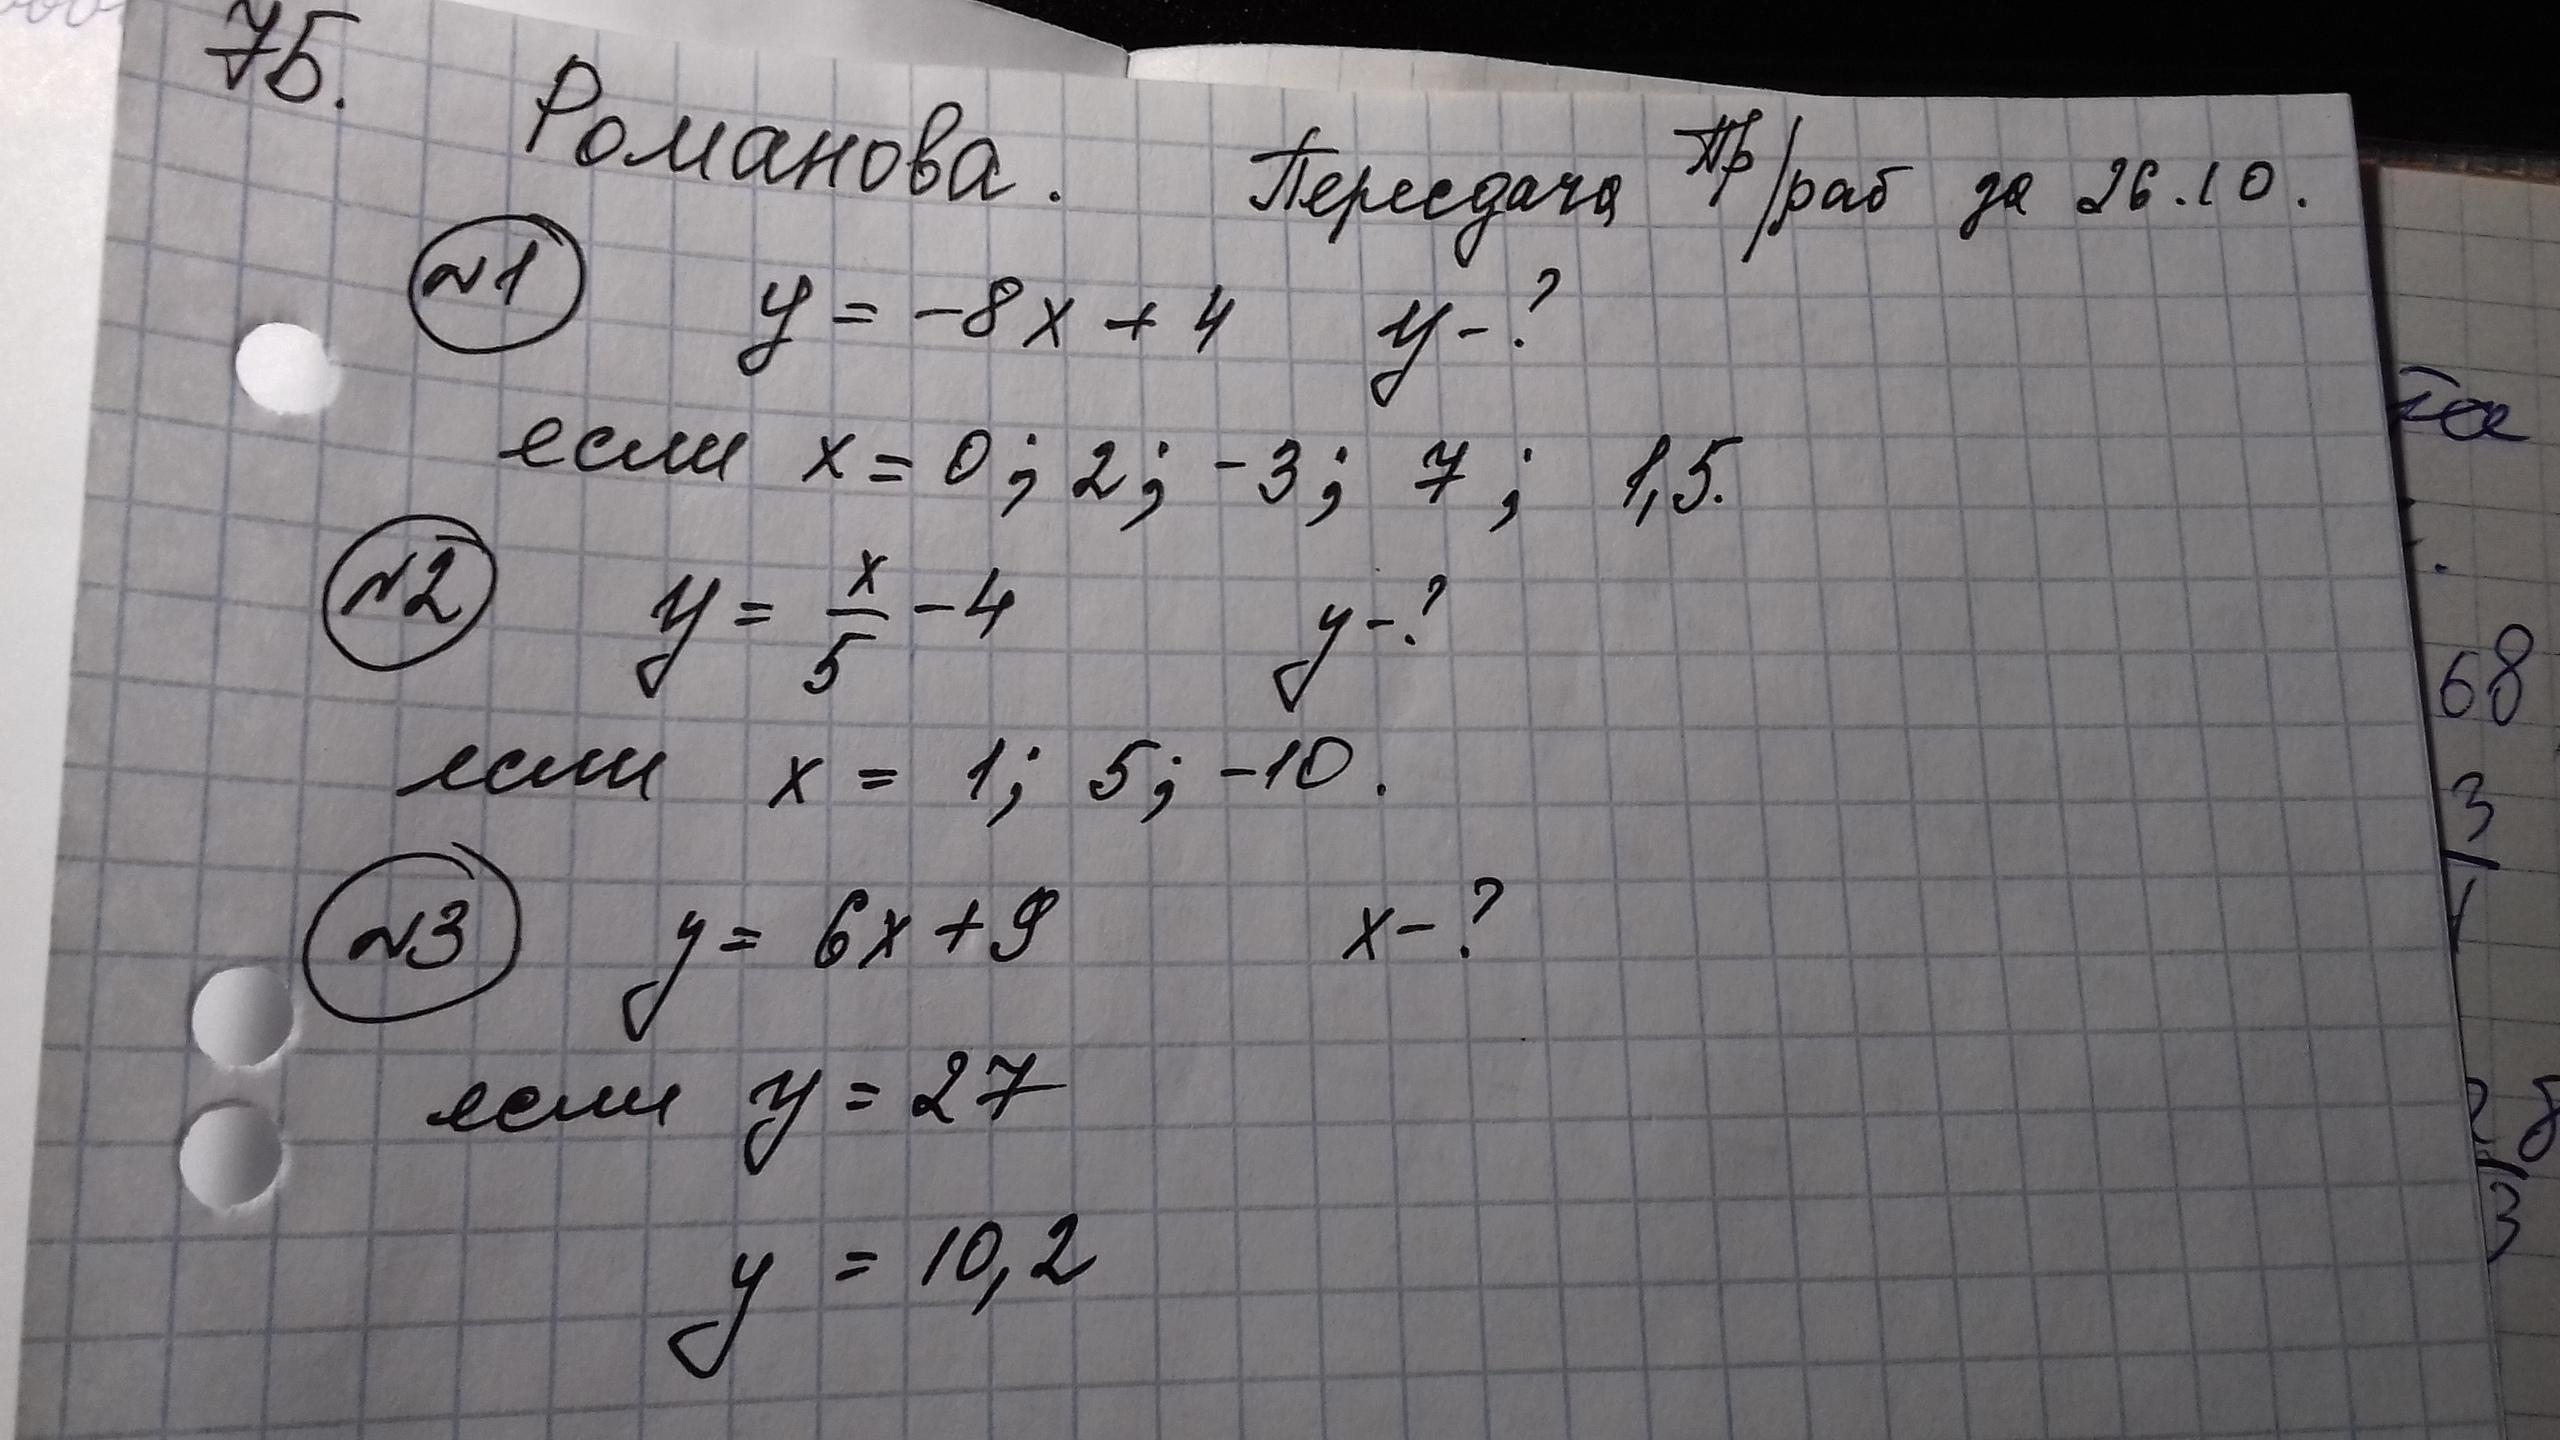 7Б.
Романова. Пересдача пр/раб за 26.10.
№1 y = -8x + 4 y - ?
если x = 0; 2; -3; 7; 1,5.
№2 y = x/5 - 4 y - ?
если x = 1; 5; -10.
№3 y = 6x + 9 x - ?
если y = 27
y = 10,2
68
3
3